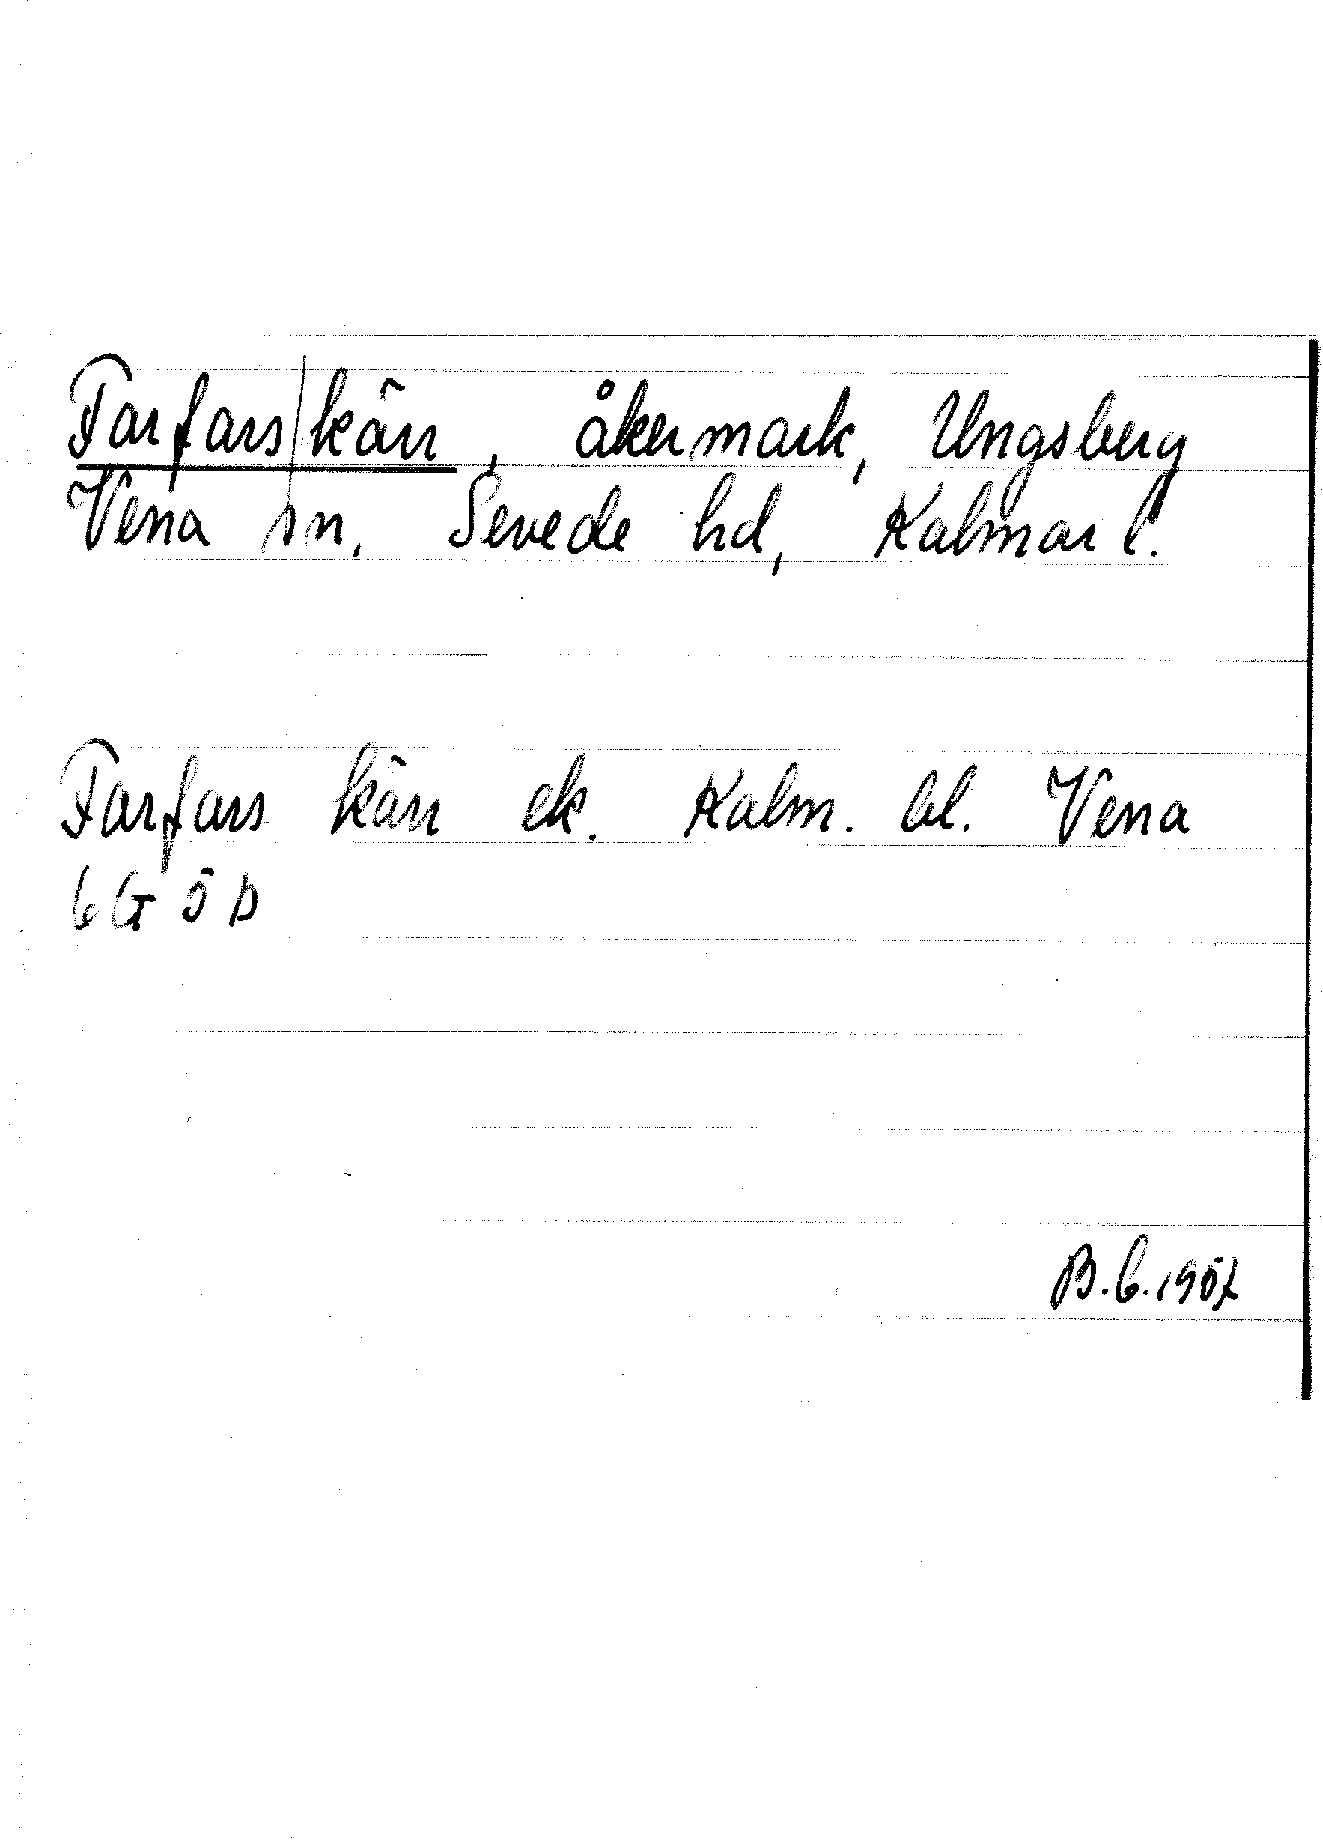 Farfars|kärr, åkermark, Ungsberg
Vena sn, Sevede hd, Kalmar l.
Farfars kärr ek. Kalm. bl. Vena
6G 5b
B.C.1957